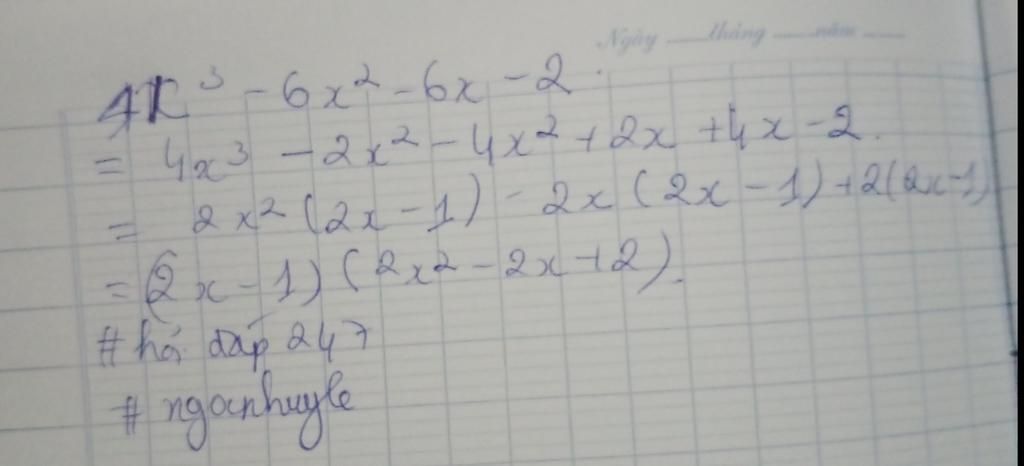 Ngày tháng năm
4x³ - 6x² - 6x - 2.
= 4x³ - 2x² - 4x² + 2x + 4x - 2.
= 2x² (2x - 1) - 2x (2x - 1) + 2(2x - 1)
= (2x - 1) (2x² - 2x + 2).
# hỏi đáp 247
# ngocnhuyle